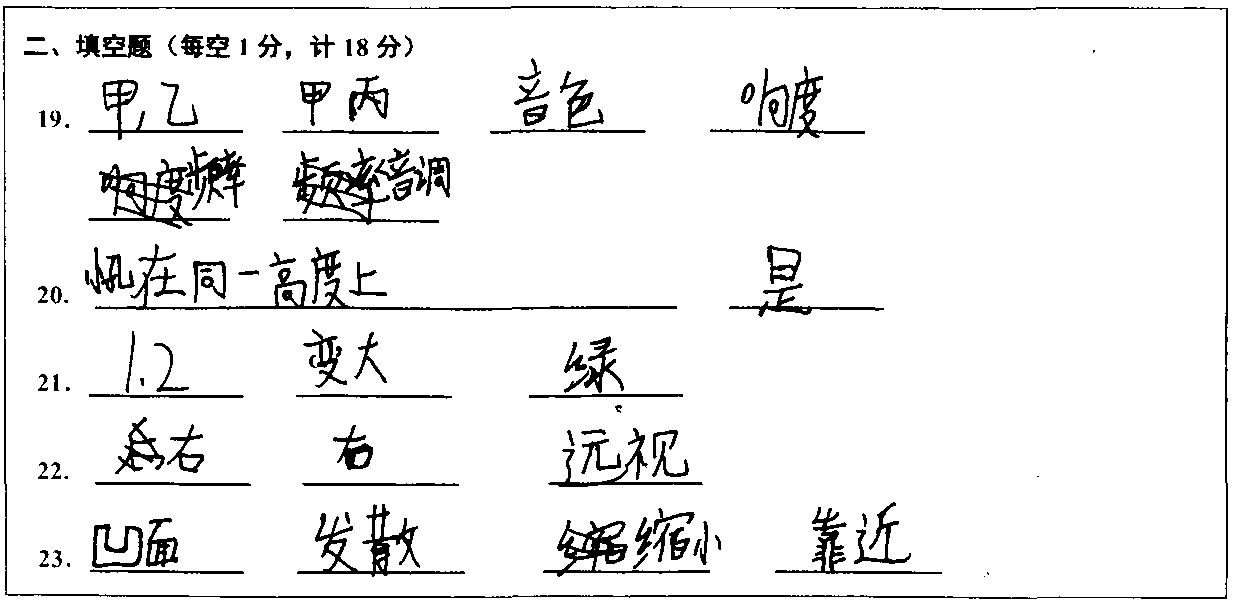 二、填空题（每空1分，计18分）
19. 甲,乙 甲丙 音色 响度
频率 音调
20. 在同一高度上 是
21. 1.2 变大 绿
22. 右 右 远视
23. 凹面 发散 缩小 靠近